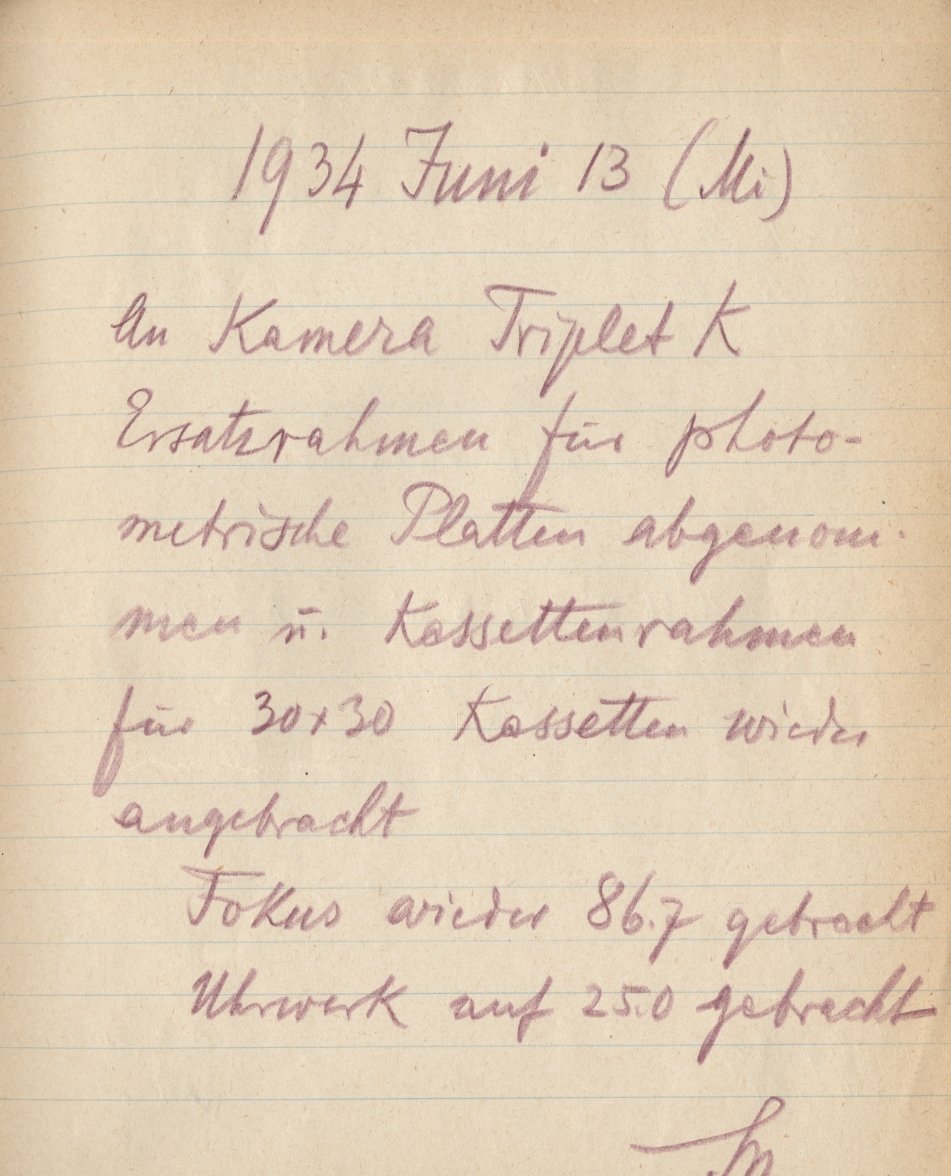 1934 Juni 13 (Mi)
An Kamera Triplet K
Ersatzrahmen für photo-
metrische Platten abgenom-
men u. Kassettenrahmen
für 30x30 Kassetten wieder
angebracht
Fokus wieder 86.7 gebracht
Uhrwerk auf 25.0 gebracht